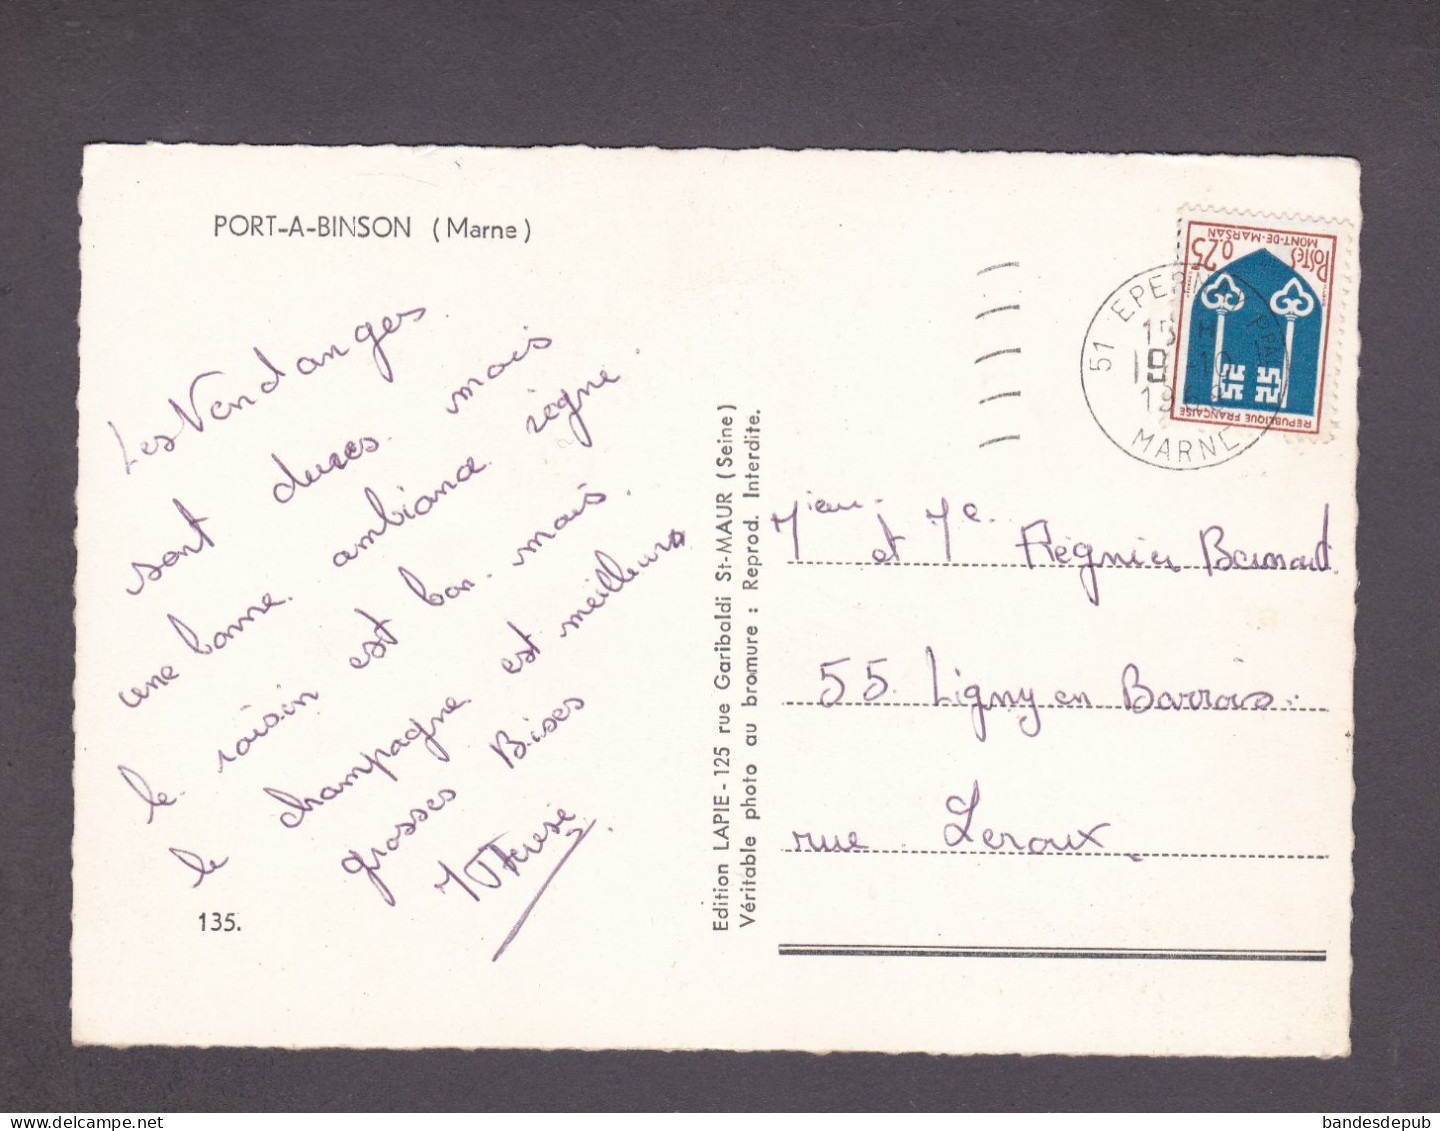 PORT-A-BINSON (Marne)
Les Vendanges
sont dures mais
une bonne ambiance règne.
le raisin est bon. mais.
le champagne est meilleur
grosses Bises
M Therese
135.
Edition LAPIE - 125 rue Garibaldi St-MAUR (Seine)
Véritable photo au bromure : Reprod. Interdite.
POSTES 0,25
MONT-DE-MARSAN
REPUBLIQUE FRANÇAISE
51 EPERNAY PPAL
15 H
10
MARNE
Mieur et Me. Régnier Bernard
55. Ligny en Barrois.
rue Leroux
bandesdepub